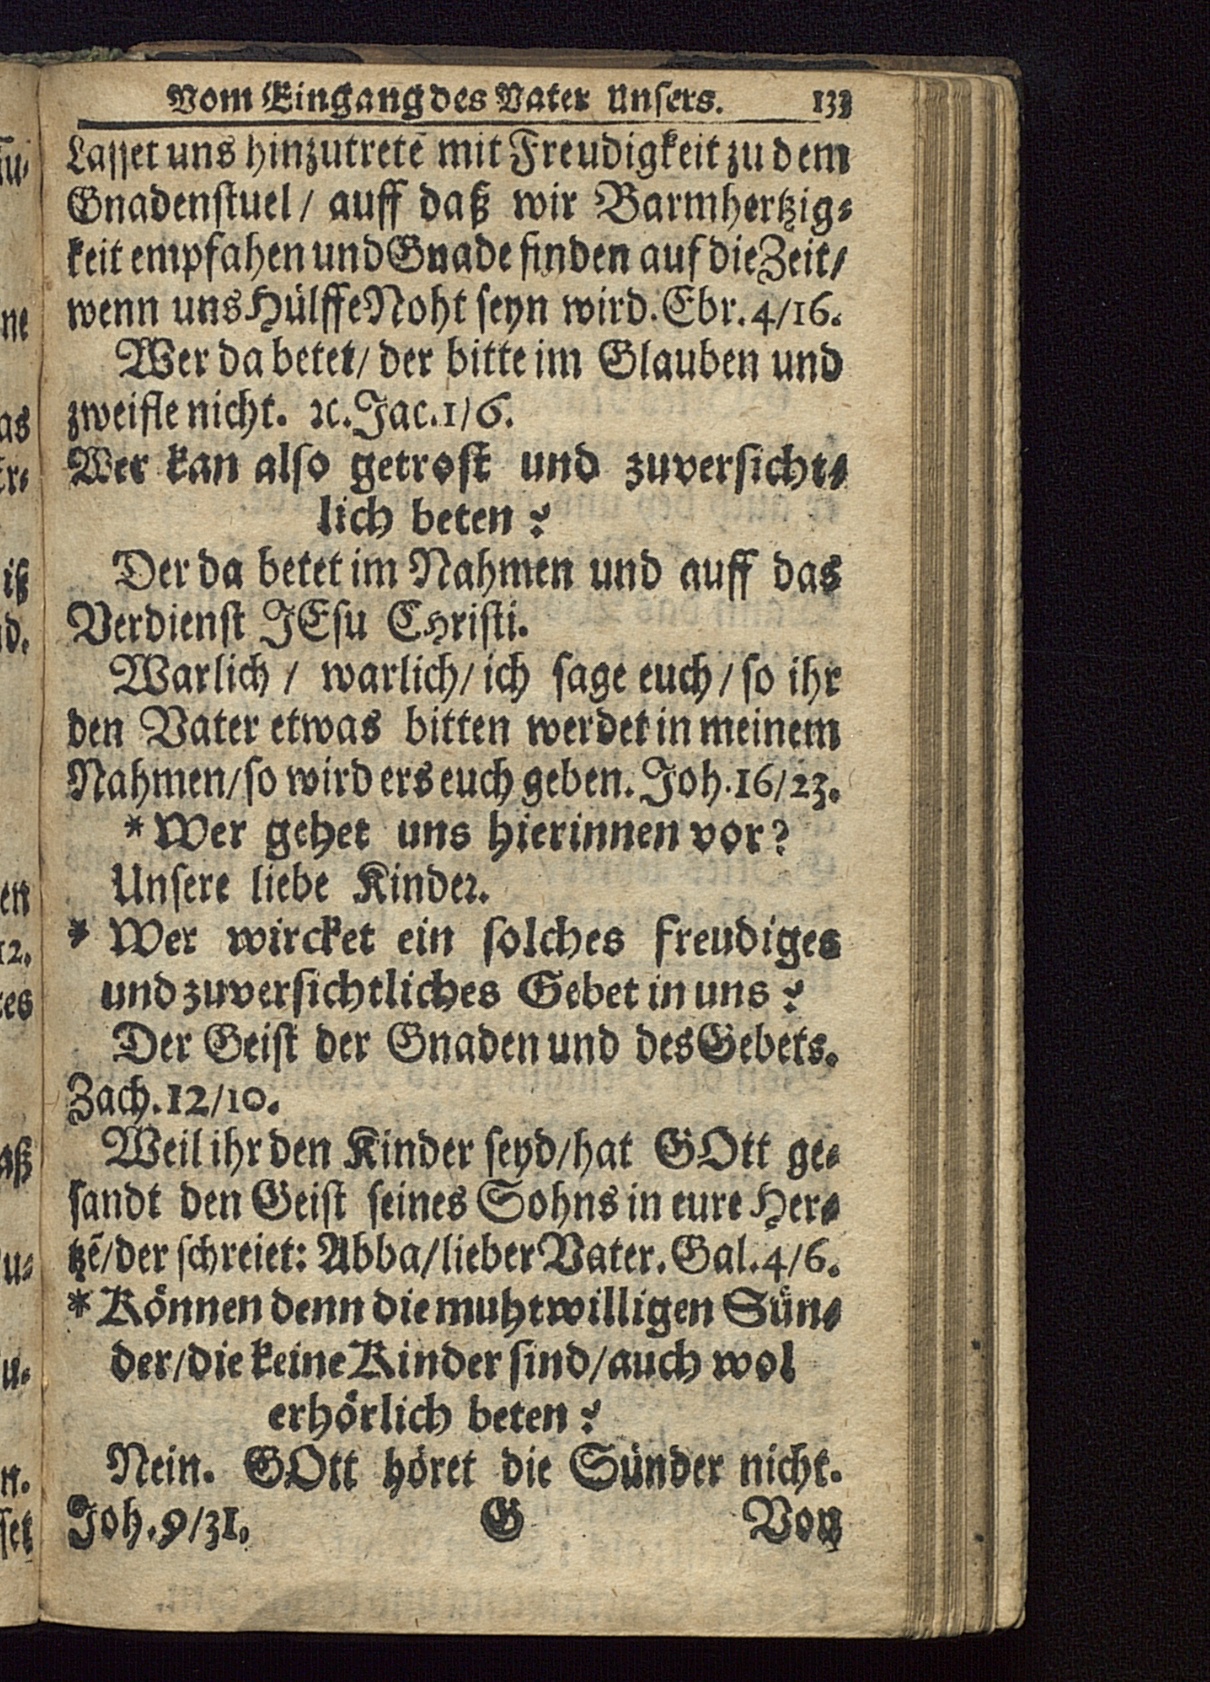 Vom Eingang des Vater Unsers. 133
Lasset uns hinzutretē mit Freudigkeit zu dem
Gnadenstuel / auff daß wir Barmhertzig⸗
keit empfahen und Gnade finden auf die Zeit /
wenn uns Hülffe Noht seyn wird. Ebr. 4/16.
Wer da betet / der bitte im Glauben und
zweifle nicht. ꝛc. Jac. 1/6.
Wer kan also getrost und zuversicht⸗
lich beten?
Der da betet im Nahmen und auff das
Verdienst JEsu CHristi.
Warlich / warlich / ich sage euch / so ihr
den Vater etwas bitten werdet in meinem
Nahmen / so wird ers euch geben. Joh. 16/23.
* Wer gehet uns hierinnen vor?
Unsere liebe Kinder.
* Wer wircket ein solches freudiges
und zuversichtliches Gebet in uns?
Der Geist der Gnaden und des Gebets.
Zach. 12/10.
Weil ihr den Kinder seyd / hat GOtt ge⸗
sandt den Geist seines Sohns in eure Her⸗
tzē / der schreiet: Abba / lieber Vater. Gal. 4/6.
* Können denn die muhtwilligen Sün⸗
der / die keine Kinder sind / auch wol
erhörlich beten?
Nein. GOtt höret die Sünder nicht.
Joh. 9/31. G Von